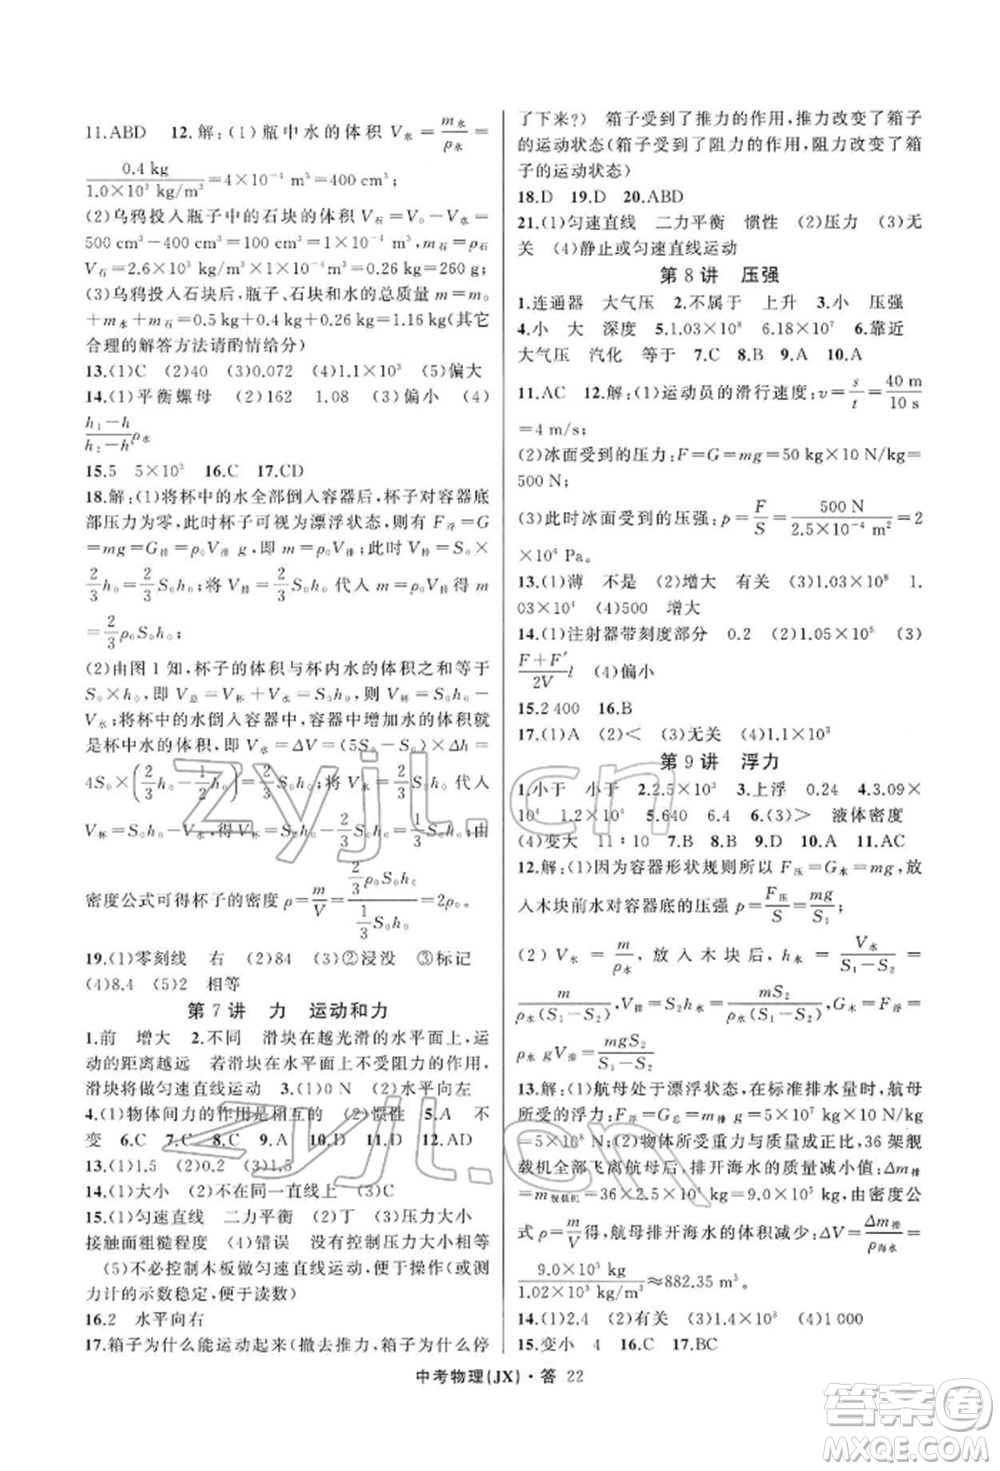 11.ABD 12.解:(1)瓶中水的体积 V水=m水/ρ水=
0.4 kg/1.0×10³ kg/m³=4×10⁻⁴ m³=400 cm³;
(2)乌鸦投入瓶子中的石块的体积 V石=V总-V水=
500 cm³-400 cm³=100 cm³=1×10⁻⁴ m³,m石=ρ石
V石=2.6×10³ kg/m³×1×10⁻⁴ m³=0.26 kg=260 g;
(3)乌鸦投入石块后,瓶子、石块和水的总质量 m=m₀
+m水+m石=0.5 kg+0.4 kg+0.26 kg=1.16 kg(其它
合理的解答方法请酌情给分)
13.(1)C (2)40 (3)0.072 (4)1.2×10³ (5)偏大
14.(1)平衡螺母 (2)162 1.08 (3)偏小 (4)
h₁-h/h₂-h ρ水
15.5 5×10³ 16.C 17.CD
18.解:(1)将杯中的水全部倒入容器后,杯子对容器底
部压力为零,此时杯子可视为漂浮状态,则有 F浮=G
=mg=G排=ρ₀V排 g,即 m=ρ₀V排,因为 V排=S₀×
2/3h₀=2/3S₀h₀,将 V排=2/3S₀h₀代入 m=ρ₀V排得 m
=2/3ρ₀S₀h₀;
(2)由图 1 知,杯子的体积与杯内水的体积之和等于
S₀×h₀,即 V总=V杯+V水=S₀h₀,则 V杯=S₀h₀-
V水;将杯中的水倒入容器中,容器中增加水的体积就
是杯中水的体积,即 V水=ΔV=(5S₀-S₀)×Δh=
4S₀×(2/3h₀-1/2h₀)=2/3S₀h₀;将 V水=2/3S₀h₀代入
V杯=S₀h₀-V水,得 V杯=S₀h₀-2/3S₀h₀=1/3S₀h₀;由
密度公式可得杯子的密度 ρ=m/V=2/3ρ₀S₀h₀/1/3S₀h₀=2ρ₀。
19.(1)零刻线 右 (2)84 (3)②浸没 ③标记
(4)8.4 (5)2 相等
第 7 讲 力 运动和力
1.前 增大 2.不同 滑块在越光滑的水平面上,运
动的距离越远 若滑块在水平面上不受阻力的作用,
滑块将做匀速直线运动 3.(1)0 N (2)水平向左
4.(1)物体间力的作用是相互的 (2)惯性 5.A 不
变 6.C 7.C 8.C 9.A 10.D 11.D 12.AD
13.(1)1.5 (2)0.2 (3)1.5
14.(1)大小 (2)不在同一直线上 (3)C
15.(1)匀速直线 二力平衡 (2)丁 (3)压力大小
接触面粗糙程度 (4)错误 没有控制压力大小相等
(5)不必控制木板做匀速直线运动,便于操作(或测
力计的示数稳定,便于读数)
16.2 水平向右
17.箱子为什么能运动起来(撤去推力,箱子为什么停
了下来?) 箱子受到了推力的作用,推力改变了箱子
的运动状态(箱子受到了阻力的作用,阻力改变了箱
子的运动状态)
18.D 19.D 20.ABD
21.(1)匀速直线 二力平衡 惯性 (2)压力 (3)无
关 (4)静止或匀速直线运动
第 8 讲 压强
1.连通器 大气压 2.不属于 上升 3.小 压强
4.小 大 深度 5.1.03×10⁸ 6.18×10⁷ 6.靠近
大气压 汽化 等于 7.C 8.B 9.A 10.A
11.AC 12.解:(1)运动员的滑行速度:v=s/t=40 m/10 s
=4 m/s;
(2)冰面受到的压力:F=G=mg=50 kg×10 N/kg=
500 N;
(3)此时冰面受到的压强:p=F/S=500 N/2.5×10⁻⁴ m²=2
×10⁶ Pa。
13.(1)薄 不是 (2)增大 有关 (3)1.03×10⁸ 1.
03×10⁴ (4)500 增大
14.(1)注射器带刻度部分 0.2 (2)1.05×10⁵ (3)
F+F′/2V l (4)偏小
15.2 400 16.B
17.(1)A (2)< (3)无关 (4)1.1×10³
第 9 讲 浮力
1.小于 小于 2.2.5×10³ 3.上浮 0.24 4.3.09×
10⁴ 1.2×10⁴ 5.640 6.4 6.(3)> 液体密度
(4)变大 11∶10 7.B 8.B 9.D 10.A 11.AC
12.解:(1)因为容器形状规则所以 F压=G水=mg,放
入木块前水对容器底的压强 p=F压/S=mg/S₁;
(2) V水=m/ρ水,放入木块后, h水=V水/S₁-S₂=
m/ρ水(S₁-S₂)=m/ρ水(S₁-S₂),V排=S₂h水=mS₂/ρ水(S₁-S₂),G木=F浮=
ρ水gV排=mgS₂/S₁-S₂
13.解:(1)航母处于漂浮状态,在标准排水量时,航母
所受的浮力:F浮=G总=m排g=5×10⁷ kg×10 N/kg
=5×10⁸ N;(2)物体所受重力与质量成正比,36 架舰
载机全部飞离航母后,排开海水的质量减小值:Δm排
=m舰载机=36×2.5×10⁴ kg=9.0×10⁵ kg,由密度公
式 ρ=m/V得,航母排开海水的体积减少:ΔV=Δm排/ρ海水=
9.0×10⁵ kg/1.02×10³ kg/m³≈882.35 m³。
14.(1)2.4 (2)有关 (3)1.4×10³ (4)1 000
15.变小 4 16.C 17.BC
中考物理(JX)·答 22
zyjl.cn
zyjl.cn
答案圈
MXQE.COM